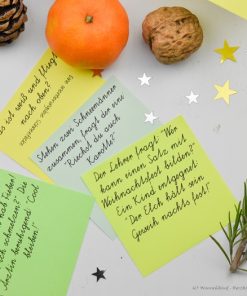 Was ist weiß und fliegt
nach oben?
Stehen zwei Schneemänner
zusammen, fragt der eine:
"Riechst du auch
Karotte?"
Der Lehrer fragt: "Wer
kann einen Satz mit
Weihnachtsfest bilden?"
Ein Kind entgegnet:
"Der Elch hält sein
Geweih nachts fest!"
Fieber!
schmelzen?" Die
beruhigend: "Cool
bleiben!"